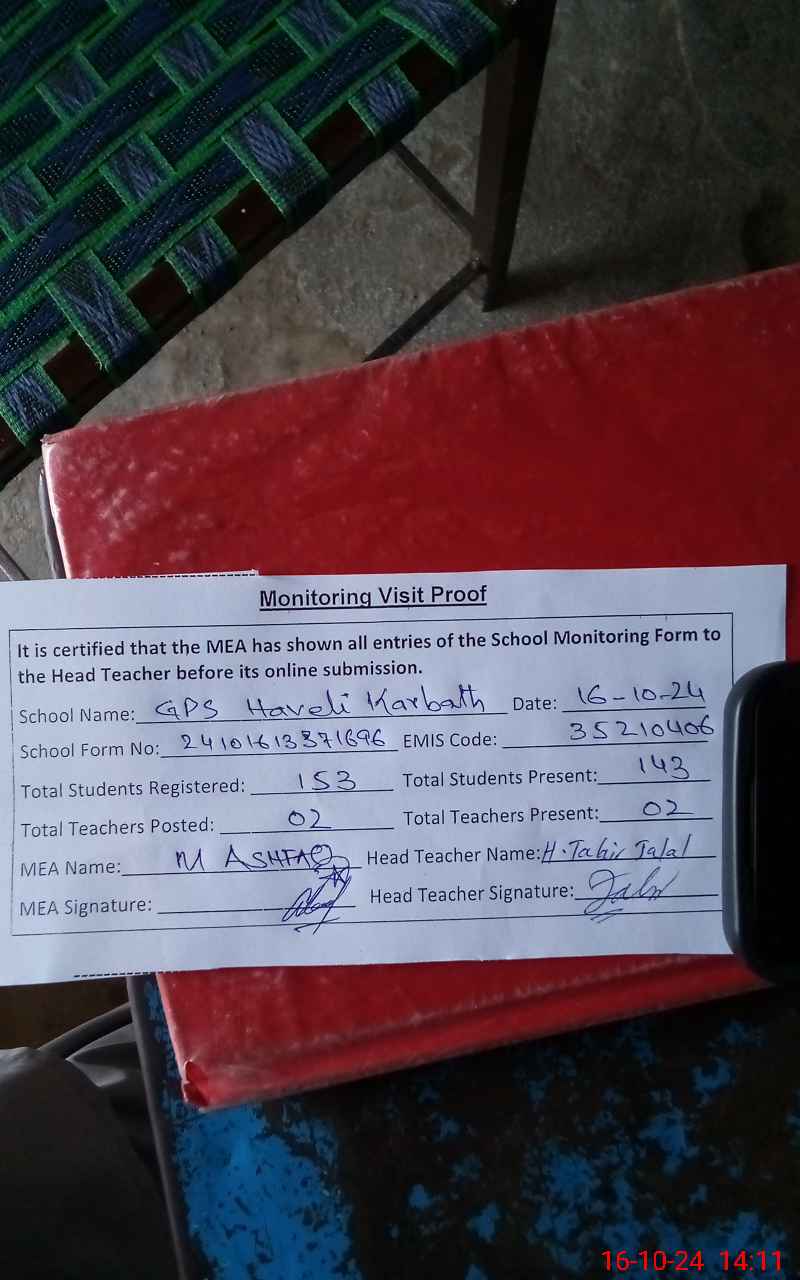 Monitoring Visit Proof
It is certified that the MEA has shown all entries of the School Monitoring Form to
the Head Teacher before its online submission.
School Name: GPS Haveli Karbath Date: 16-10-24
School Form No: 24101613371696 EMIS Code: 35210406
Total Students Registered: 153 Total Students Present: 143
Total Teachers Posted: 02 Total Teachers Present: 02
MEA Name: M ASHFAQ Head Teacher Name: H.Tahir Jalal
MEA Signature: Head Teacher Signature:
16-10-24 14:11